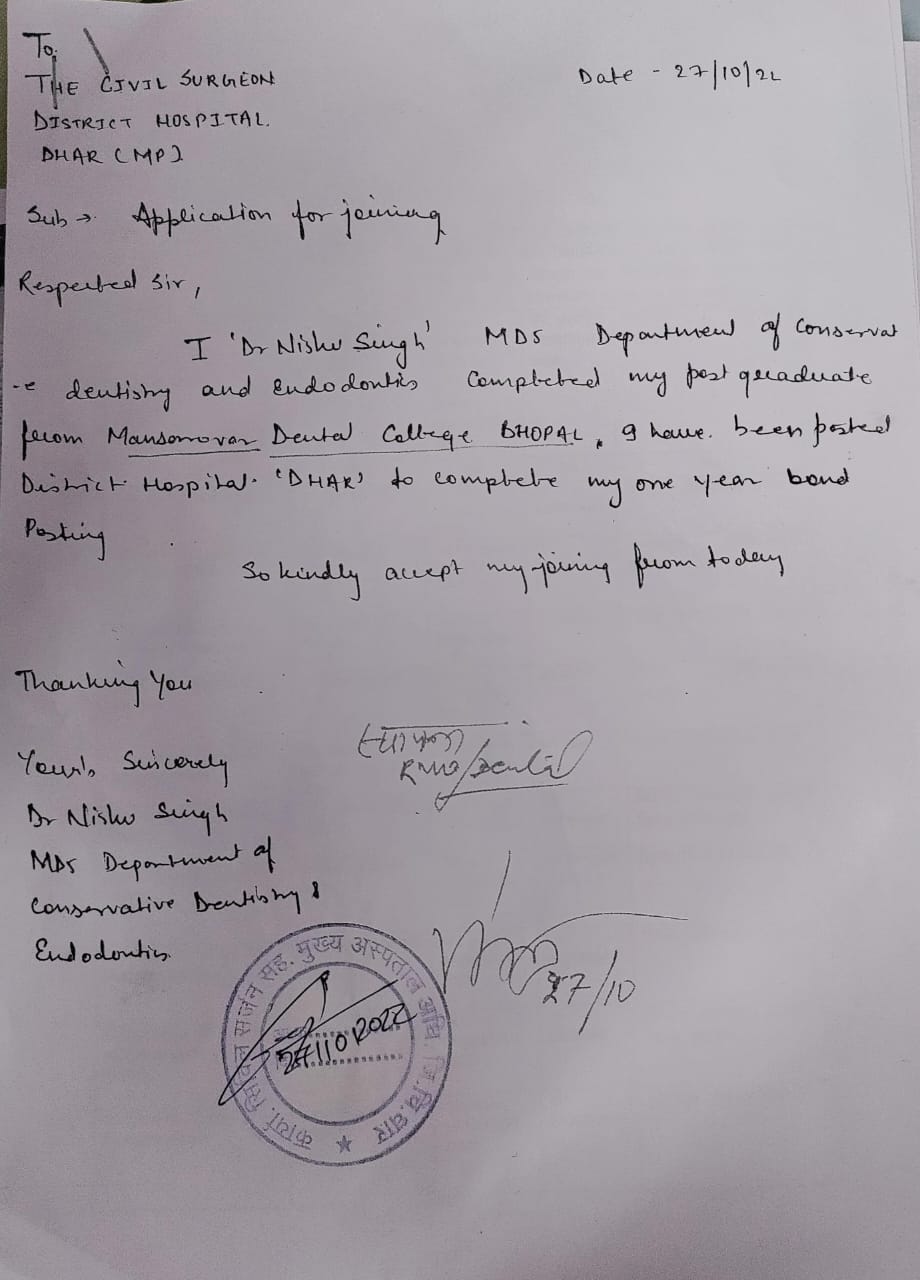 To,
THE CIVIL SURGEON
Date - 27/10/22
DISTRICT HOSPITAL.
DHAR (MP)
Sub → Application for joining
Respected Sir,
I 'Dr Nishu Singh' MDS Department of Conservat
-e dentistry and Endodontics Completed my post graduate
from Mansarovar Dental College BHOPAL, I have. been posted
District Hospital. 'DHAR' to complete my one year bond
Posting
So kindly accept my joining from today
Thanking You
Your's Sincerely
Dr Nishu Singh
MDS Department of
Conservative Dentistry &
Endodontics.
RMO/Dental
27/10
कार्या. सिविल सर्जन सह. मुख्य अस्पताल अधि. जि.चि.धार
27/10/2022